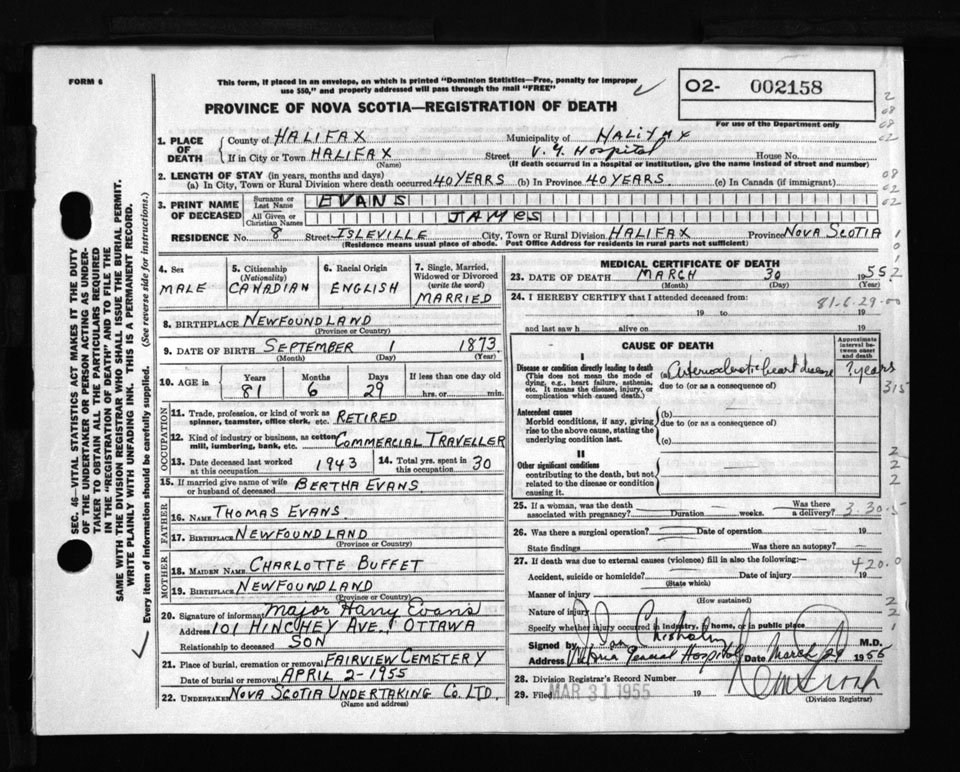 FORM 6
This form, if placed in an envelope, on which is printed "Dominion Statistics—Free, penalty for improper
use $50," and properly addressed will pass through the mail "FREE"
PROVINCE OF NOVA SCOTIA—REGISTRATION OF DEATH
O2- 002158
For use of the Department only
1. PLACE OF DEATH
County of HALIFAX Municipality of HALIFAX
If in City or Town HALIFAX Street V. G. Hospital House No.
(Name) (If death occurred in a hospital or institution, give the name instead of street and number)
2. LENGTH OF STAY (in years, months and days)
(a) In City, Town or Rural Division where death occurred 40 YEARS (b) In Province 40 YEARS. (c) In Canada (if immigrant)
3. PRINT NAME OF DECEASED
Surname or Last Name EVANS
All Given or Christian Names JAMES
RESIDENCE No. 8 Street ISLEVILLE City, Town or Rural Division HALIFAX Province NOVA SCOTIA
(Residence means usual place of abode. Post Office Address for residents in rural parts not sufficient)
4. Sex MALE
5. Citizenship (Nationality) CANADIAN
6. Racial Origin ENGLISH
7. Single, Married, Widowed or Divorced (write the word) MARRIED
8. BIRTHPLACE NEWFOUNDLAND
(Province or Country)
9. DATE OF BIRTH SEPTEMBER 1 1873
(Month) (Day) (Year)
10. AGE in Years Months Days If less than one day old
81 6 29 hrs. or min.
OCCUPATION
11. Trade, profession, or kind of work as
spinner, teamster, office clerk, etc. RETIRED
12. Kind of industry or business, as cotton
mill, lumbering, bank, etc. COMMERCIAL TRAVELLER
13. Date deceased last worked at this occupation 1943
14. Total yrs. spent in this occupation 30
15. If married give name of wife
or husband of deceased BERTHA EVANS
FATHER
16. NAME THOMAS EVANS
17. BIRTHPLACE NEWFOUNDLAND
(Province or Country)
MOTHER
18. MAIDEN NAME CHARLOTTE BUFFET
19. BIRTHPLACE NEWFOUNDLAND
(Province or Country)
20. Signature of informant Major Harry Evans
Address 101 HINCHEY AVE., OTTAWA
Relationship to deceased SON
21. Place of burial, cremation or removal FAIRVIEW CEMETERY
Date of burial or removal APRIL 2-1955
22. UNDERTAKER NOVA SCOTIA UNDERTAKING CO. LTD.
(Name and address)
MEDICAL CERTIFICATE OF DEATH
23. DATE OF DEATH MARCH 30 1955
(Month) (Day) (Year)
24. I HEREBY CERTIFY that I attended deceased from:
81-6-29-00
19 to 19
and last saw h alive on 19
CAUSE OF DEATH
Approximate interval between onset and death
I
Disease or condition directly leading to death
(This does not mean the mode of
dying, e.g., heart failure, asthenia,
etc. It means the disease, injury, or
complication which caused death.)
(a) Arteriosclerotic heart disease ? years
due to (or as a consequence of)
Antecedent causes
Morbid conditions, if any, giving
rise to the above cause, stating the
underlying condition last.
(b)
due to (or as a consequence of)
(c)
II
Other significant conditions
contributing to the death, but not
related to the disease or condition
causing it.
25. If a woman, was the death Was there
associated with pregnancy? Duration weeks. a delivery?
3-30-5
26. Was there a surgical operation? Date of operation 19
State findings Was there an autopsy?
27. If death was due to external causes (violence) fill in also the following:—
420.0
Accident, suicide or homicide? Date of injury 19
(State which)
Manner of injury
(How sustained)
Nature of injury
Specify whether injury occurred in industry, home, or in public place
Signed by Chisholm M.D.
Address Victoria General Hospital Date March 1955
28. Division Registrar's Record Number
29. Filed MAR 31 1955 19
(Division Registrar)
SEC. 46—VITAL STATISTICS ACT MAKES IT THE DUTY
OF THE UNDERTAKER OR PERSON ACTING AS UNDER-
TAKER TO OBTAIN ALL THE PARTICULARS REQUIRED
IN THE "REGISTRATION OF DEATH" AND TO FILE THE
SAME WITH THE DIVISION REGISTRAR WHO SHALL ISSUE THE BURIAL PERMIT.
WRITE PLAINLY WITH UNFADING INK. THIS IS A PERMANENT RECORD.
Every item of information should be carefully supplied. (See reverse side for instructions.)